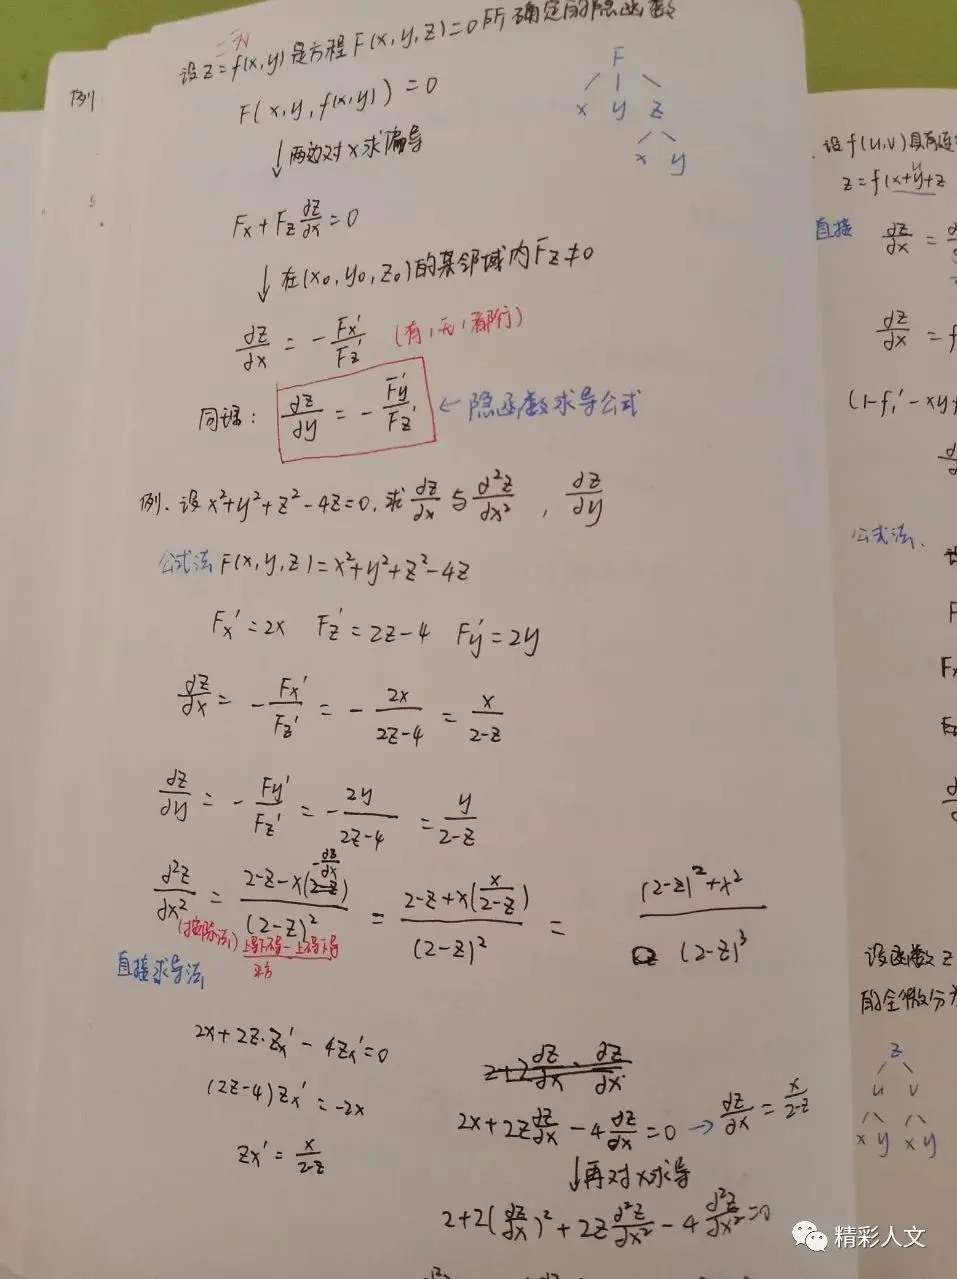 二元
例 设z=f(x,y)是方程F(x,y,z)=0所确定的隐函数
F(x,y,f(x,y))=0
F
x y z
x y
↓两边对x求偏导
Fx+Fz ∂z/∂x=0
↓在(x₀,y₀,z₀)的某邻域内Fz≠0
∂z/∂x = -Fx'/Fz' (有'无'都行)
同理: ∂z/∂y = -Fy'/Fz' ←隐函数求导公式
例.设x²+y²+z²-4z=0,求∂z/∂x与∂²z/∂x²,∂z/∂y
公式法 F(x,y,z)=x²+y²+z²-4z
Fx'=2x Fz'=2z-4 Fy'=2y
∂z/∂x = -Fx'/Fz' = -2x/(2z-4) = x/(2-z)
∂z/∂y = -Fy'/Fz' = -2y/(2z-4) = y/(2-z)
∂²z/∂x² = (2-z-x(-∂z/∂x))/(2-z)² = (2-z+x(x/(2-z)))/(2-z)² = ((2-z)²+x²)/(2-z)³
(按除法) 上导下不导-上不导下导
平方
直接求导法
2x+2z·zx'-4zx'=0
(2z-4)zx'=-2x
zx'=x/(2-z)
2x+2z∂z/∂x-4∂z/∂x=0 → ∂z/∂x=x/(2-z)
↓再对x求导
2+2(∂z/∂x)²+2z∂²z/∂x²-4∂²z/∂x²=0
设f(u,v)具有连
z=f(x+y+z
u
直接 ∂z/∂x =
∂z/∂x = f
(1-f₁'-xy
公式法.
设函数z
的全微分
z
u v
x y x y
精彩人文